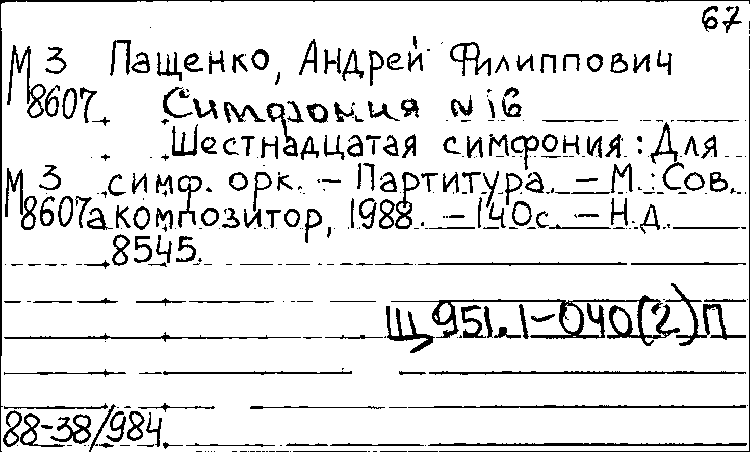 67
М 3 Пащенко, Андрей Филиппович
8607 Симфония № 16
Шестнадцатая симфония : Для
М 3 симф. орк. – Партитура. – М. : Сов.
8607а композитор, 1988. – 140с. – Н.д.
8545.
Щ951.1-040(2)П
88-38/984